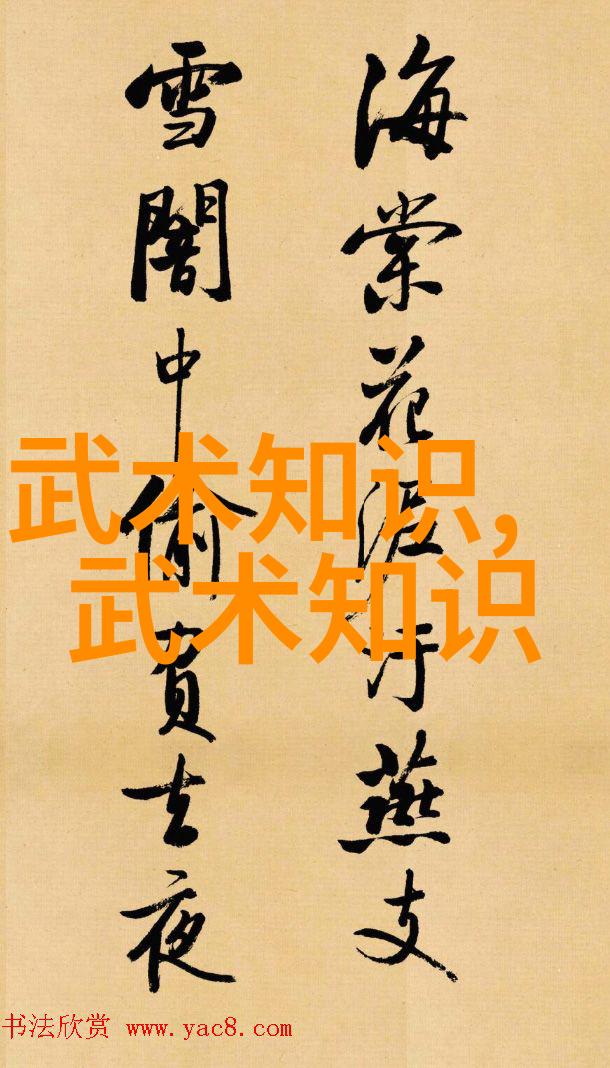 海棠花泥汙燕支
雪闇中偷負去夜
武术知识,
武术知识
书法欣赏 www.yac8.com